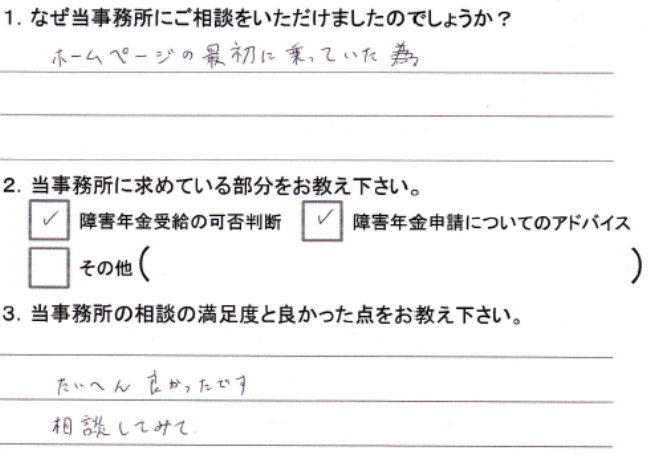 1. なぜ当事務所にご相談をいただけましたのでしょうか？
ホームページの最初に乗っていた為
2. 当事務所に求めている部分をお教え下さい。
✓ 障害年金受給の可否判断 ✓ 障害年金申請についてのアドバイス
その他（ ）
3. 当事務所の相談の満足度と良かった点をお教え下さい。
たいへん良かったです
相談してみて